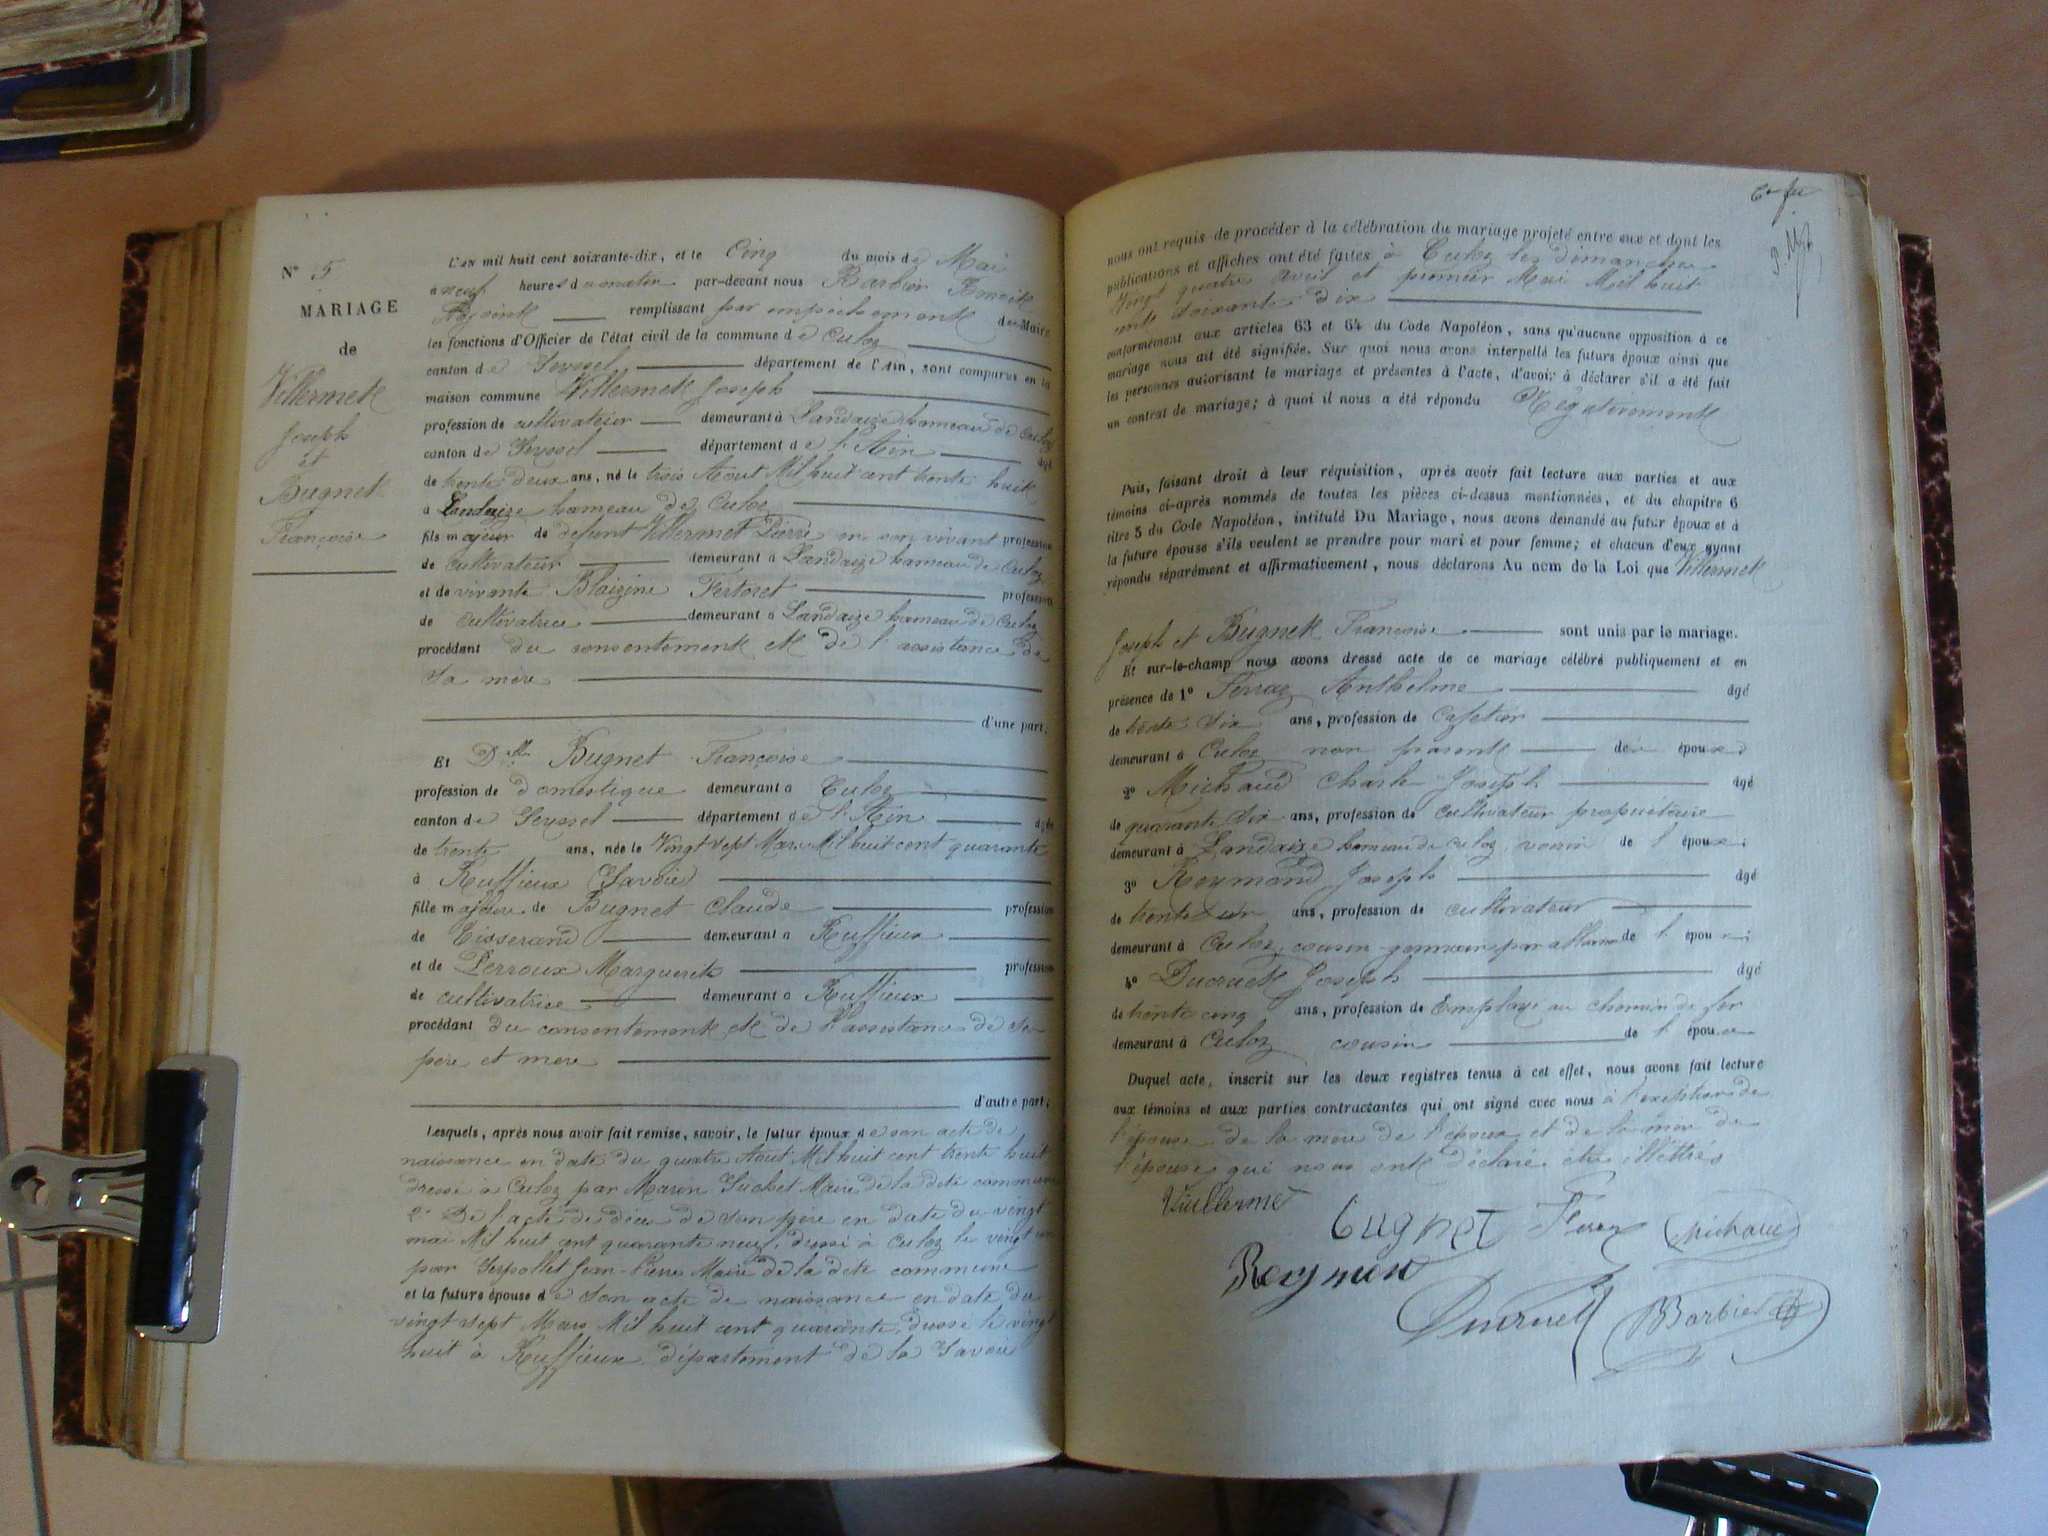 N° 5
MARIAGE
de
Villermet
Joseph
et
Bugnet
Françoise
L'an mil huit cent soixante-dix, et le Cinq du mois de Mai
à neuf heures du matin par-devant nous Barbier Benoit
Adjoint remplissant par empêchement du Maire
les fonctions d'Officier de l'état civil de la commune de Culoz
canton de Seyssel département de l'Ain, sont comparus en la
maison commune Villermet Joseph
profession de cultivateur demeurant à Landaize hameau de Culoz
canton de Seyssel département de l'Ain âgé
de trente deux ans, né le trois Aout Mil huit cent trente huit
à Landaize hameau de Culoz
fils majeur de defunt Villermet Pierre en son vivant profession
de cultivateur demeurant à Landaize hameau de Culoz
et de vivante Blaizine Fertoret profession
de cultivatrice demeurant à Landaize hameau de Culoz
procédant du consentement et de l'assistance de
sa mère
d'une part,
Et Dlle Bugnet Françoise
profession de domestique demeurant à Culoz
canton de Seyssel département de l'Ain âgée
de trente ans, née le Vingt sept Mars Mil huit cent quarante
à Ruffieux (Savoie)
fille majeure de Bugnet Claude profession
de Tisserand demeurant à Ruffieux
et de Perroux Marguerite profession
de cultivatrice demeurant à Ruffieux
procédant du consentement et de l'assistance de ses
père et mère
d'autre part;
Lesquels, après nous avoir fait remise, savoir, le futur époux de son acte de
naissance en date du quatre Aout Mil huit cent trente huit
dressé à Culoz par Marin Suchet Maire de la dite commune
2° De l'acte de décès de son père en date du vingt
mai Mil huit cent quarante neuf, dressé à Culoz le vingt un
par Serpollet Jean-Pierre Maire de la dite commune
et la future épouse de son acte de naissance en date du
vingt sept Mars Mil huit cent quarante, dressé le vingt
huit à Ruffieux, département de la Savoie
nous ont requis de procéder à la célébration du mariage projeté entre eux et dont les
publications et affiches ont été faites à Culoz les dimanches
Vingt quatre Avril et premier Mai Mil huit
cent soixante dix
conformément aux articles 63 et 64 du Code Napoléon, sans qu'aucune opposition à ce
mariage nous ait été signifiée. Sur quoi nous avons interpellé les futurs époux ainsi que
les personnes autorisant le mariage et présentes à l'acte, d'avoir à déclarer s'il a été fait
un contrat de mariage; à quoi il nous a été répondu Négativement
Puis, faisant droit à leur réquisition, après avoir fait lecture aux parties et aux
témoins ci-après nommés de toutes les pièces ci-dessus mentionnées, et du chapitre 6
titre 5 du Code Napoléon, intitulé Du Mariage, nous avons demandé au futur époux et à
la future épouse s'ils veulent se prendre pour mari et pour femme; et chacun d'eux ayant
répondu séparément et affirmativement, nous déclarons Au nom de la Loi que Villermet
Joseph et Bugnet Françoise sont unis par le mariage.
Et sur-le-champ nous avons dressé acte de ce mariage célébré publiquement et en
présence de 1° Ferraz Anthelme âgé
de trente six ans, profession de cafetier
demeurant à Culoz non parent des époux
2° Michaud Charle Joseph âgé
de quarante six ans, profession de cultivateur propriétaire
demeurant à Landaize hameau de Culoz, voisin de l'époux;
3° Reymond Joseph âgé
de trente un ans, profession de cultivateur
demeurant à Culoz, cousin germain par alliance de l'époux;
4° Ducruet Joseph âgé
de trente cinq ans, profession de Employé au chemin de fer
demeurant à Culoz cousin de l'épouse
Duquel acte, inscrit sur les deux registres tenus à cet effet, nous avons fait lecture
aux témoins et aux parties contractantes qui ont signé avec nous à l'exception de
l'épouse, de la mère de l'époux et de la mère de
l'épouse, qui nous ont déclaré être illétrés
Vuillermet
bugnet Ferraz Michaud
Reymond
Ducruet BBarbier